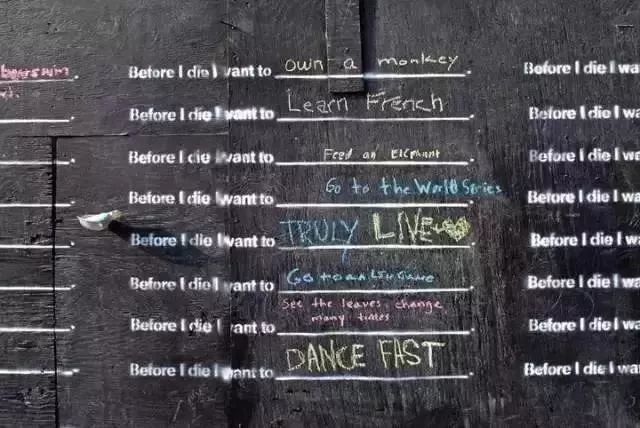 Before I die I want to own a monkey.
Before I die I want to Learn French.
Before I die I want to Feed an Elephant.
Before I die I want to Go to the World Series.
Before I die I want to TRULY LIVE.
Before I die I want to Go to an LSU Game.
Before I die I want to See the leaves change
many times.
Before I die I want to DANCE FAST.
Before I die I wa
Before I die I wa
Before I die I wa
Before I die I wa
Before I die I wa
Before I die I wa
Before I die I wa
Before I die I wa